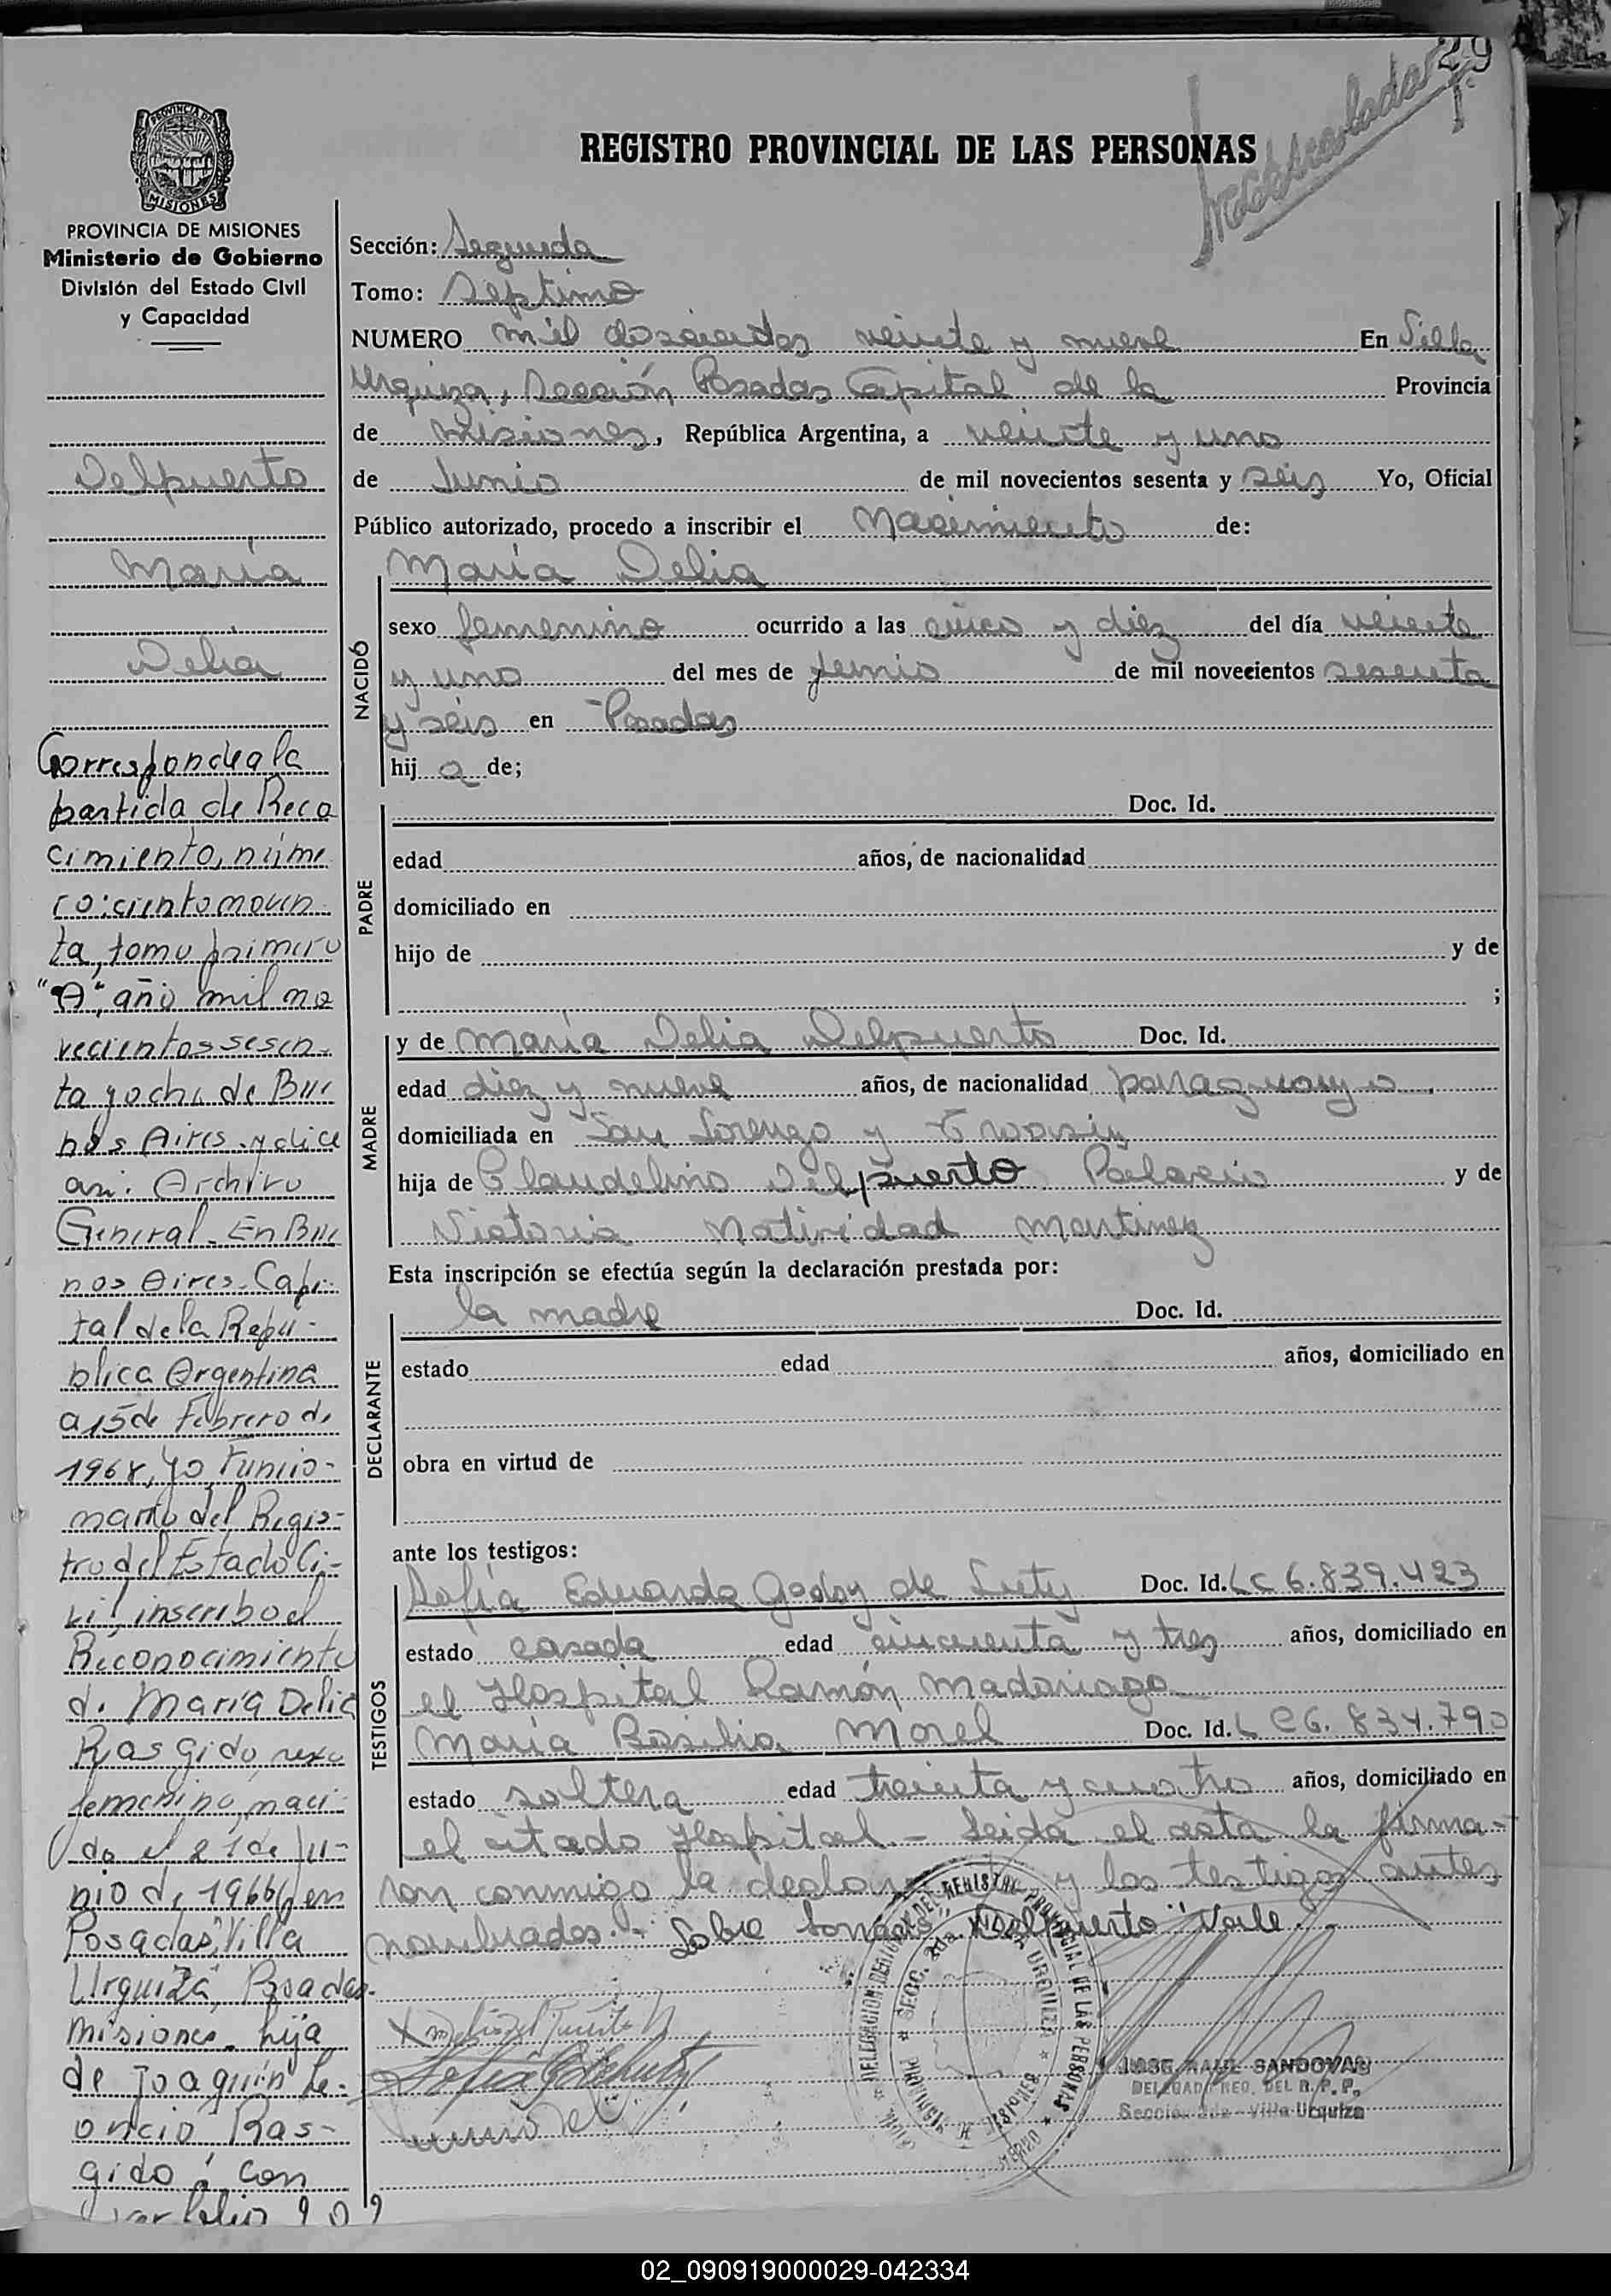 29
Mecanografiada
REGISTRO PROVINCIAL DE LAS PERSONAS
PROVINCIA DE
MISIONES
PROVINCIA DE MISIONES
Ministerio de Gobierno
División del Estado Civil
y Capacidad
Delpuerto
María
Delia
Corresponde a la
partida de Reco
cimiento, núme
ro: ciento noven
ta, tomo primero
"A", año mil no
vecientos sesen-
ta y ocho de Bue
nos Aires y dice
así: Archivo
General - En Bue
nos Aires - Capi-
tal de la Repú-
blica Argentina
a 15 de Febrero de
1968, yo, Funcio-
nario del Regis-
tro del Estado Ci-
vil, inscribo el
Reconocimiento
de María Delia
Rasgido, sexo
femenino, naci-
da el 21 de Ju-
nio de 1966 en
Posadas, Villa
Urquiza, Posadas.
Misiones. hija
de Joaquín Le-
oncio Ras-
gido; con
ver folio 909
Sección: Segunda
Tomo: Septimo
NUMERO mil doscientos veinte y nueve En Villa
Urquiza, Sección Posadas Capital de la Provincia
de Misiones, República Argentina, a veinte y uno
de Junio de mil novecientos sesenta y seis Yo, Oficial
Público autorizado, procedo a inscribir el Nacimiento de:
NACIDO
María Delia
sexo femenino ocurrido a las cinco y diez del día veinte
y uno del mes de junio de mil novecientos sesenta
y seis en Posadas
hij a de;
PADRE
Doc. Id.
edad años, de nacionalidad
domiciliado en
hijo de y de
;
MADRE
y de María Delia Delpuerto Doc. Id.
edad diez y nueve años, de nacionalidad paraguaya
domiciliada en San Lorenzo y
hija de Claudelino Delpuerto Palacio y de
Victoria Natividad Martinez
Esta inscripción se efectúa según la declaración prestada por:
DECLARANTE
la madre Doc. Id.
estado edad años, domiciliado en
obra en virtud de
ante los testigos:
TESTIGOS
Sofía Eduarda Godoy de Doc. Id. LC 6.839.423
estado casada edad cincuenta y tres años, domiciliado en
el Hospital Ramón Madariaga
María Basilia Morel Doc. Id. L C 6.834.790
estado soltera edad treinta y cuatro años, domiciliado en
el citado Hospital.- Leida el acta la firma-
ron conmigo la declarante y los testigos antes
nombrados.- Sobre borrado: "Delpuerto" Vale.-
DELEGACION DEL REGISTRO PROVINCIAL DE LAS PERSONAS
SECC. 2da. VILLA URQUIZA
PROVINCIA DE MISIONES
JOSE RAUL SANDOVAL
DELEGADO REG. DEL R. P. P.
Sección 2da - Villa Urquiza
02_090919000029-042334